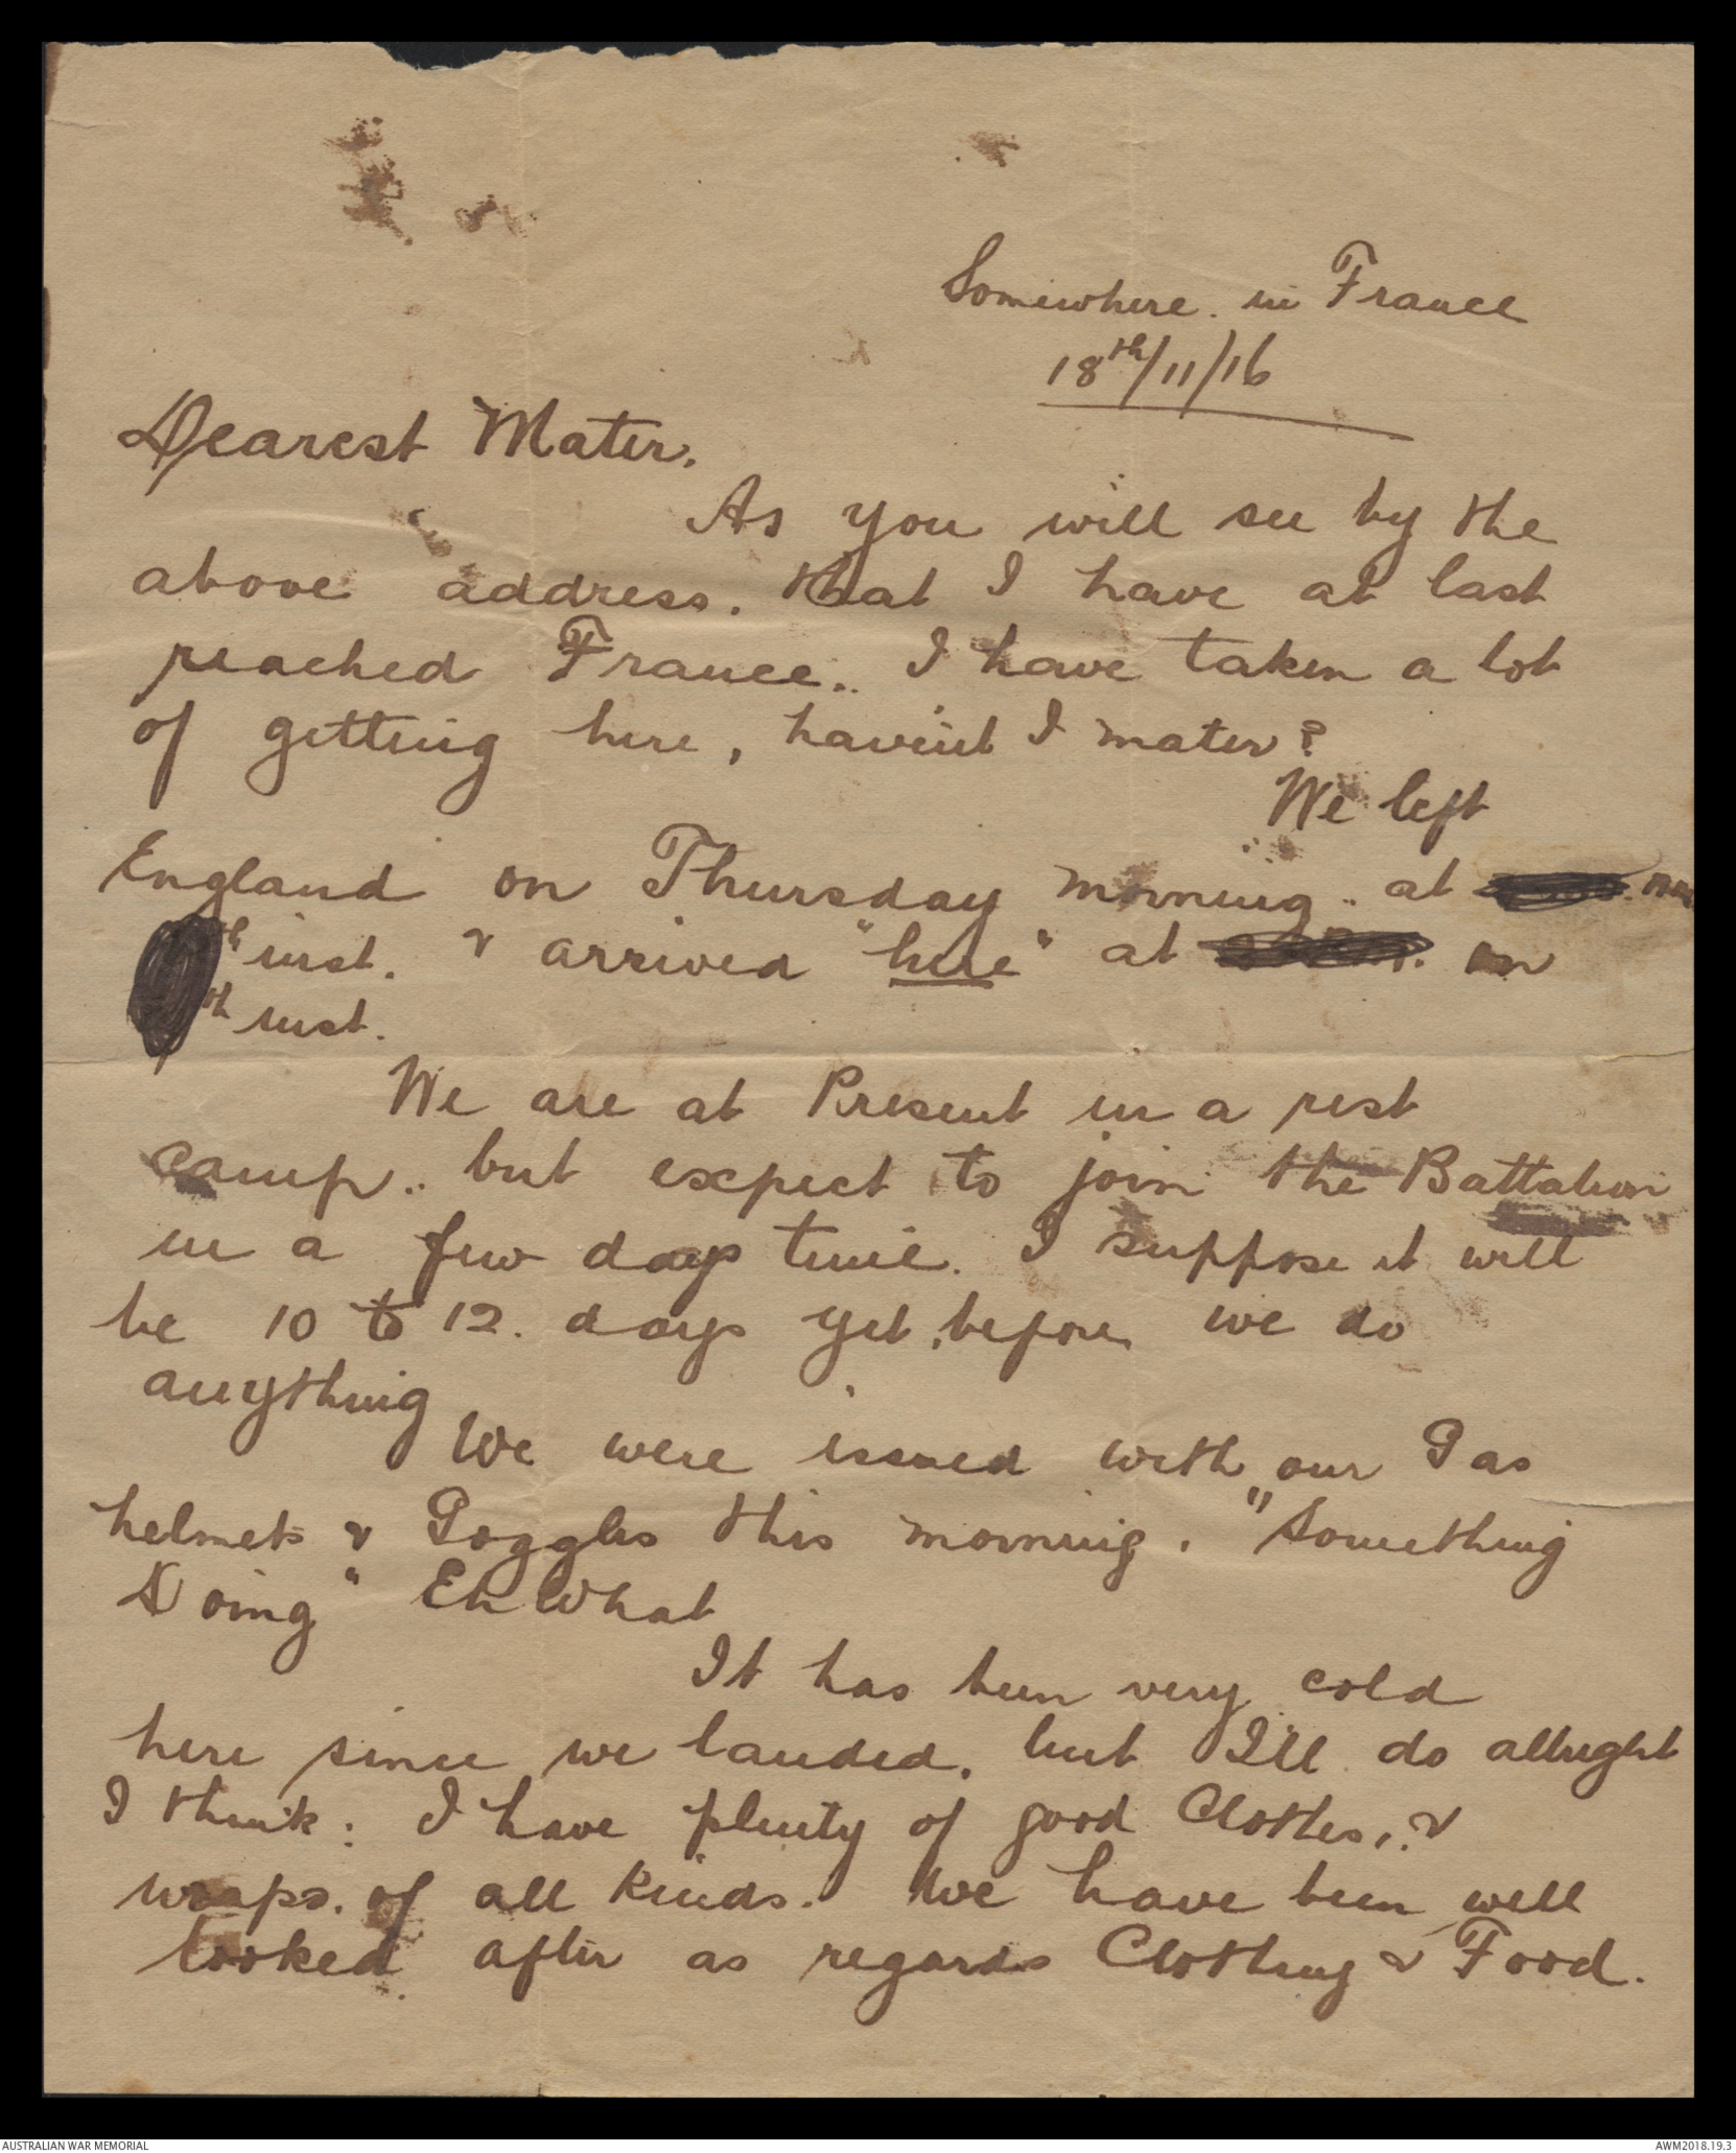 Somewhere. in France
18th/11/16
Dearest Mater.
As you will see by the
above address. that I have at last
reached France.. I have taken a lot
of getting here, haven't I mater?
We left
England on Thursday morning.. at
th inst. & arrived "here" at on
th inst.
We are at Present in a rest
camp.. but expect to join the Battalion
in a few days time. I suppose it will
be 10 to 12. days yet, before we do
anything
We were issued with our Gas
helmets & Goggles this morning. "Something
Doing" Eh What
It has been very cold
here since we landed. but I'll do allright
I think: I have plenty of good Clothes, &
wraps. of all kinds. We have been well
looked after as regards Clothing & Food.
AUSTRALIAN WAR MEMORIAL
AWM2018.19.3